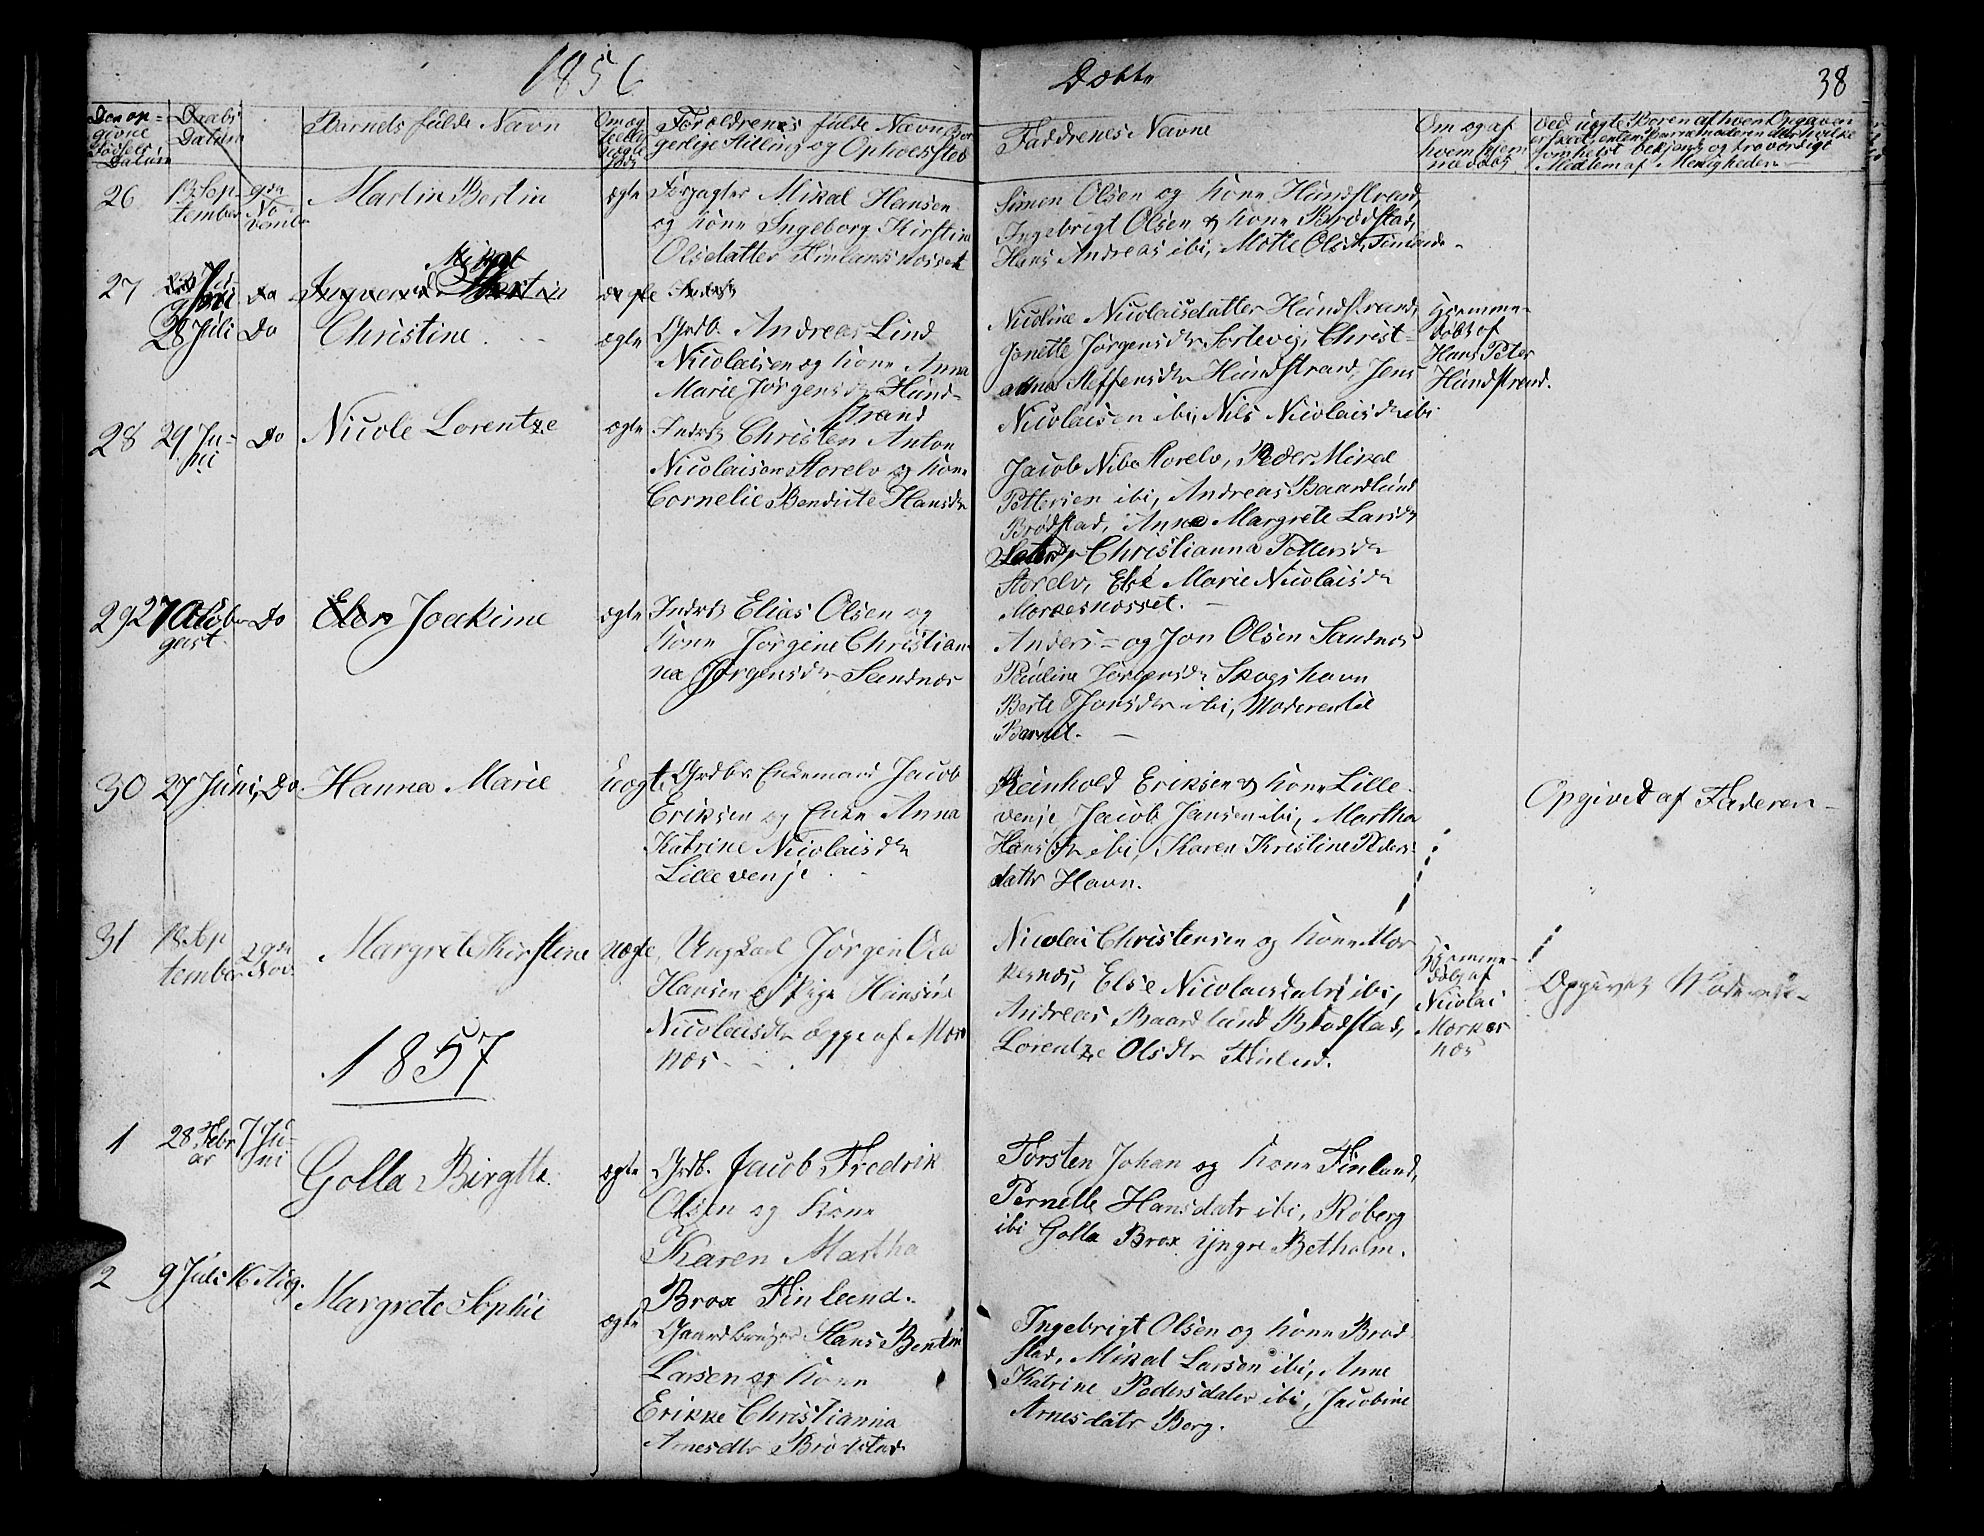 1856
Døbte
38
Den op=
givne
Fødsels
Datum
Daabs
Datum
Barnets fulde Navn
Om æg
te eller
uægte
født
Forældrenes fulde Navn Bor
gerlige Stilling og Opholdssted
Faddrenes Navne
Om og af
hvem hjem
medøbt
Ved uægte Børn af hvem Opgaven
er skeet, enten Barnemoderen eller hvilke
somhelst bekjendt og troværdigt
Medlem af Menigheden
26
13 Sep
tember
9de
No
vember
Martin Bertin
ægte
Forpagter Mikal Hansen
og Kone Ingeborg Kirstine
Olsdatter Finlandsnesset
Simon Olsen og Kone Hundstrand,
Ingebrigt Olsen & Kone Brødstad,
Hans Andreas ibi, Mette Olsdtr Finland
27
Do
Ingverd
Mikal
ægte
Indrst
28 Juli
Do
Christine
ægte
Grdb. Andreas Lind
Nicolaisen og Kone Anna
Marie Jørgensdr Hund-
strand
Nicoline Nicolaisdatter Hundstrand,
Jonette Jørgensdr Sortevig, Christ-
anna Steffensdr Hundstrand, Jens
Nicolaisen ibi, Nils Nicolaisdr ibi
Hjemme-
døbt af
Hans Peter
Hundstrand.
28
29 Ju-
ni
Do
Nicole Lorentze
ægte
Indrst Christen Anton
Nicolaisen Storelv og Kone
Cornelie Bendicte Hansdr
Jacob Nils Storelv, Peder Mikal
Pettersen ibi, Andreas Baardlund
Brødstad, Anne Margrete Larsdr
Christianna Pettersdr
Storelv, Else Marie Nicolaisdr
Morkesnæsset.
29
27 Au
gust
Do
Joakime
ægte
Indrst Elias Olsen og
Kone Jørgine Christian-
na Jørgensdr Sandnes
Anders - og Jon Olsen Sandnes
Pauline Jørgensdr Skogshavn
Berte Jonsdr ibi, Moderen til
Barnet.
30
27 Juni,
Do
Hanna Marie
uægte
Grdbr Enkemand Jacob
Eriksen og Enke Anna
Katrine Nicolaisdr
Lillevenje
Reinhold Eriksen & Kone Lille
venje Jacob Jansen ibi, Martha
Hansdr ibi, Karen Kristine Peders
datter Havn.
Opgivet af Faderen
31
18 Sep
tember
29de
Nov
Margrete Kirstine
uægte
Ungkarl Jørgen Ola
Hansen & Pige Hansine
Nicolaisdtr begge af Mork
nes
Nicolai Christensen og Kone Mor
kesnæs, Else Nicolaisdatr ibi,
Andreas Baardlund Brødstad,
Lorentze Olsdtr Finland.
Hjemme-
døbt af
Nicolai
Morkes
næs
Opgivet Moderen
1857
1
28 Febr
ar
7 Ju-
ni
Golla Birgtte
ægte
Grdb. Jacob Fredrik
Olsen og Kone
Karen Martha
Brox Finland.
Torsten Johan og Kone Finland,
Pernelle Hansdatr ibi, Roberg
ibi Golla Brox yngre Betholm.
2
9 Juli
16 Aug.
Margrete Sophie
ægte
Gaardbruger Hans Bentin
Larsen og Kone
Erikke Christianna
Arnesdtr Brødstad
Ingebrigt Olsen og Kone Brød
stad, Mikal Larsen ibi, Anne
Katrine Pedersdater ibi, Jacobine
Arnesdatr Berg.